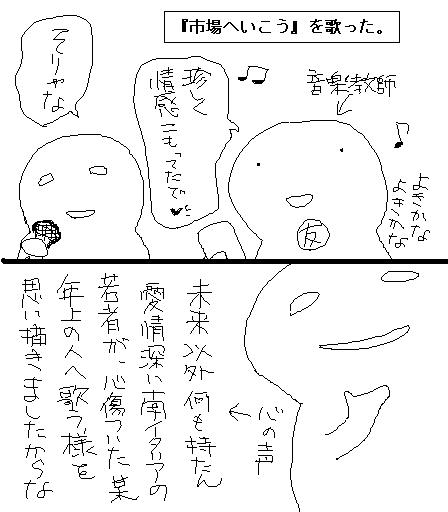 『市場へいこう』を歌った。
音楽教師
友
よきかな
よきかな
珍しく
情感こもってたで
そりゃな
心の声
未来以外何も持たん
愛情深い南イタリアの
若者が、心傷ついた某
年上の人へ歌う様を
思い描きましたからな